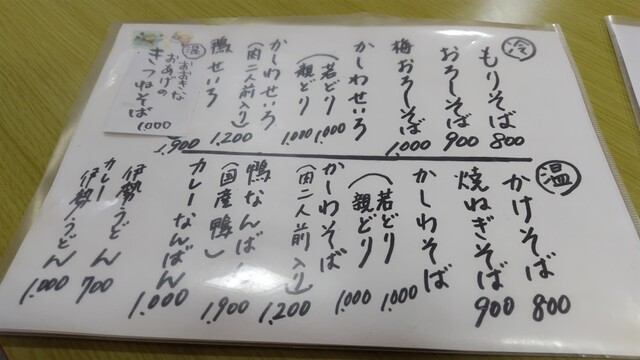 冷
もりそば 800
おろしそば 900
梅おろしそば 1,000
かしわせいろ
(若どり 1,000
親どり) 1,000
かしわせいろ
(肉二人前入り) 1,200
鴨せいろ 1,900
温
おおきな
おあげの
きつねそば
1,000
温
かけそば 800
焼ねぎそば 900
かしわそば
(若どり 1,000
親どり) 1,000
かしわそば
(肉二人前入り) 1,200
鴨なんば
(国産鴨) 1,900
カレーなんばん 1,000
伊勢うどん 700
カレー
伊勢うどん 1,000